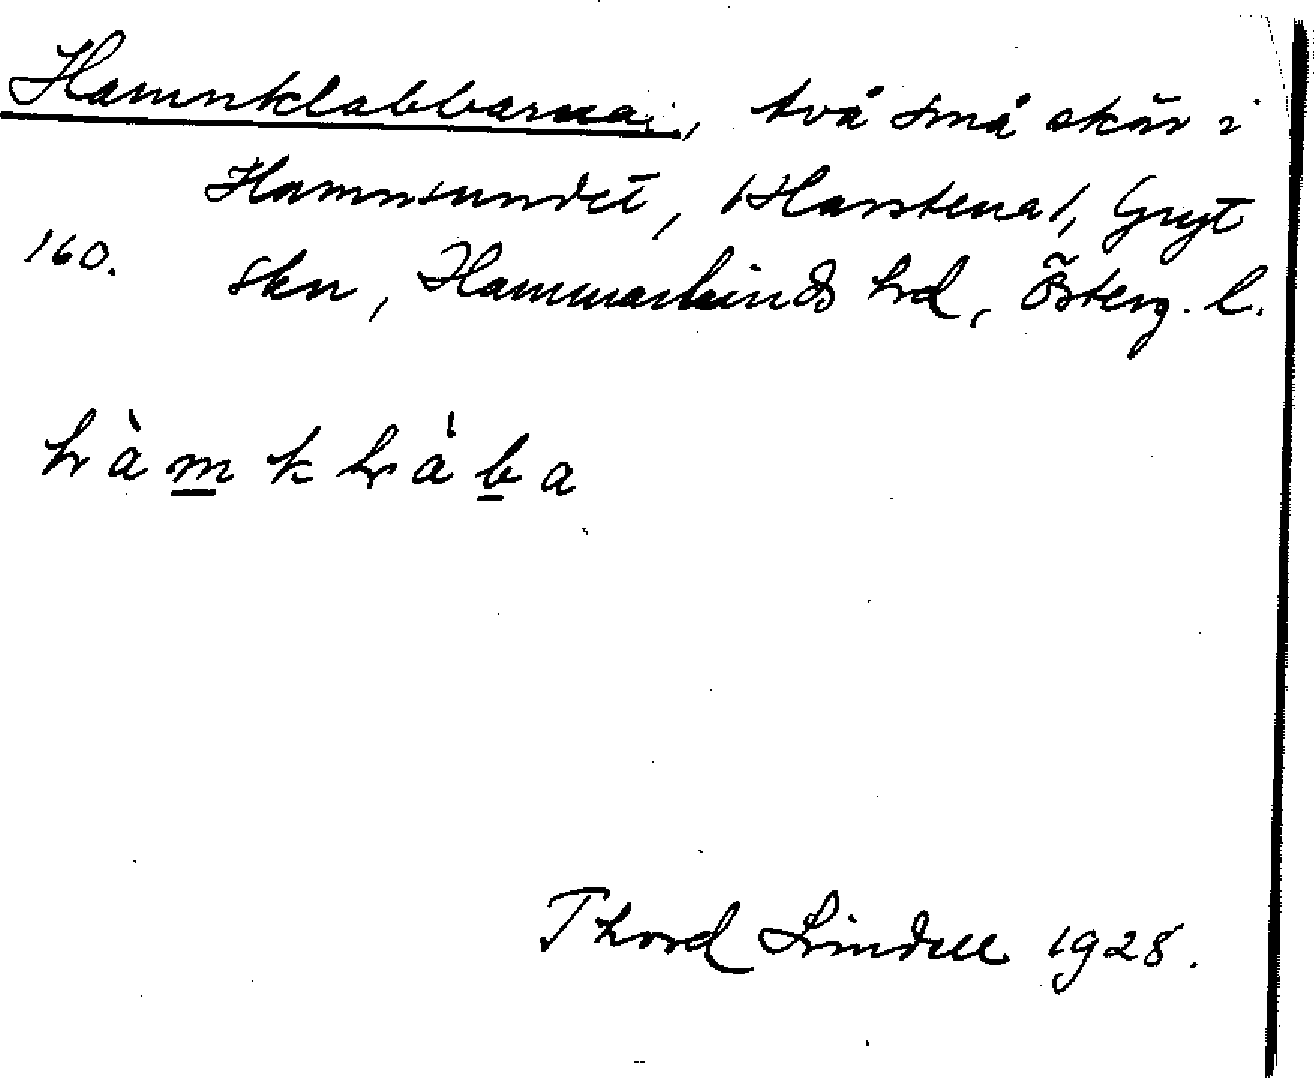 Hamnklabbarna, två små skär i
Hamnsundet, /Harstena/, Gryt
160. skn, Hammarkinds hd, Österg. l.
hàmkḷàba
Thord Lindell 1928.